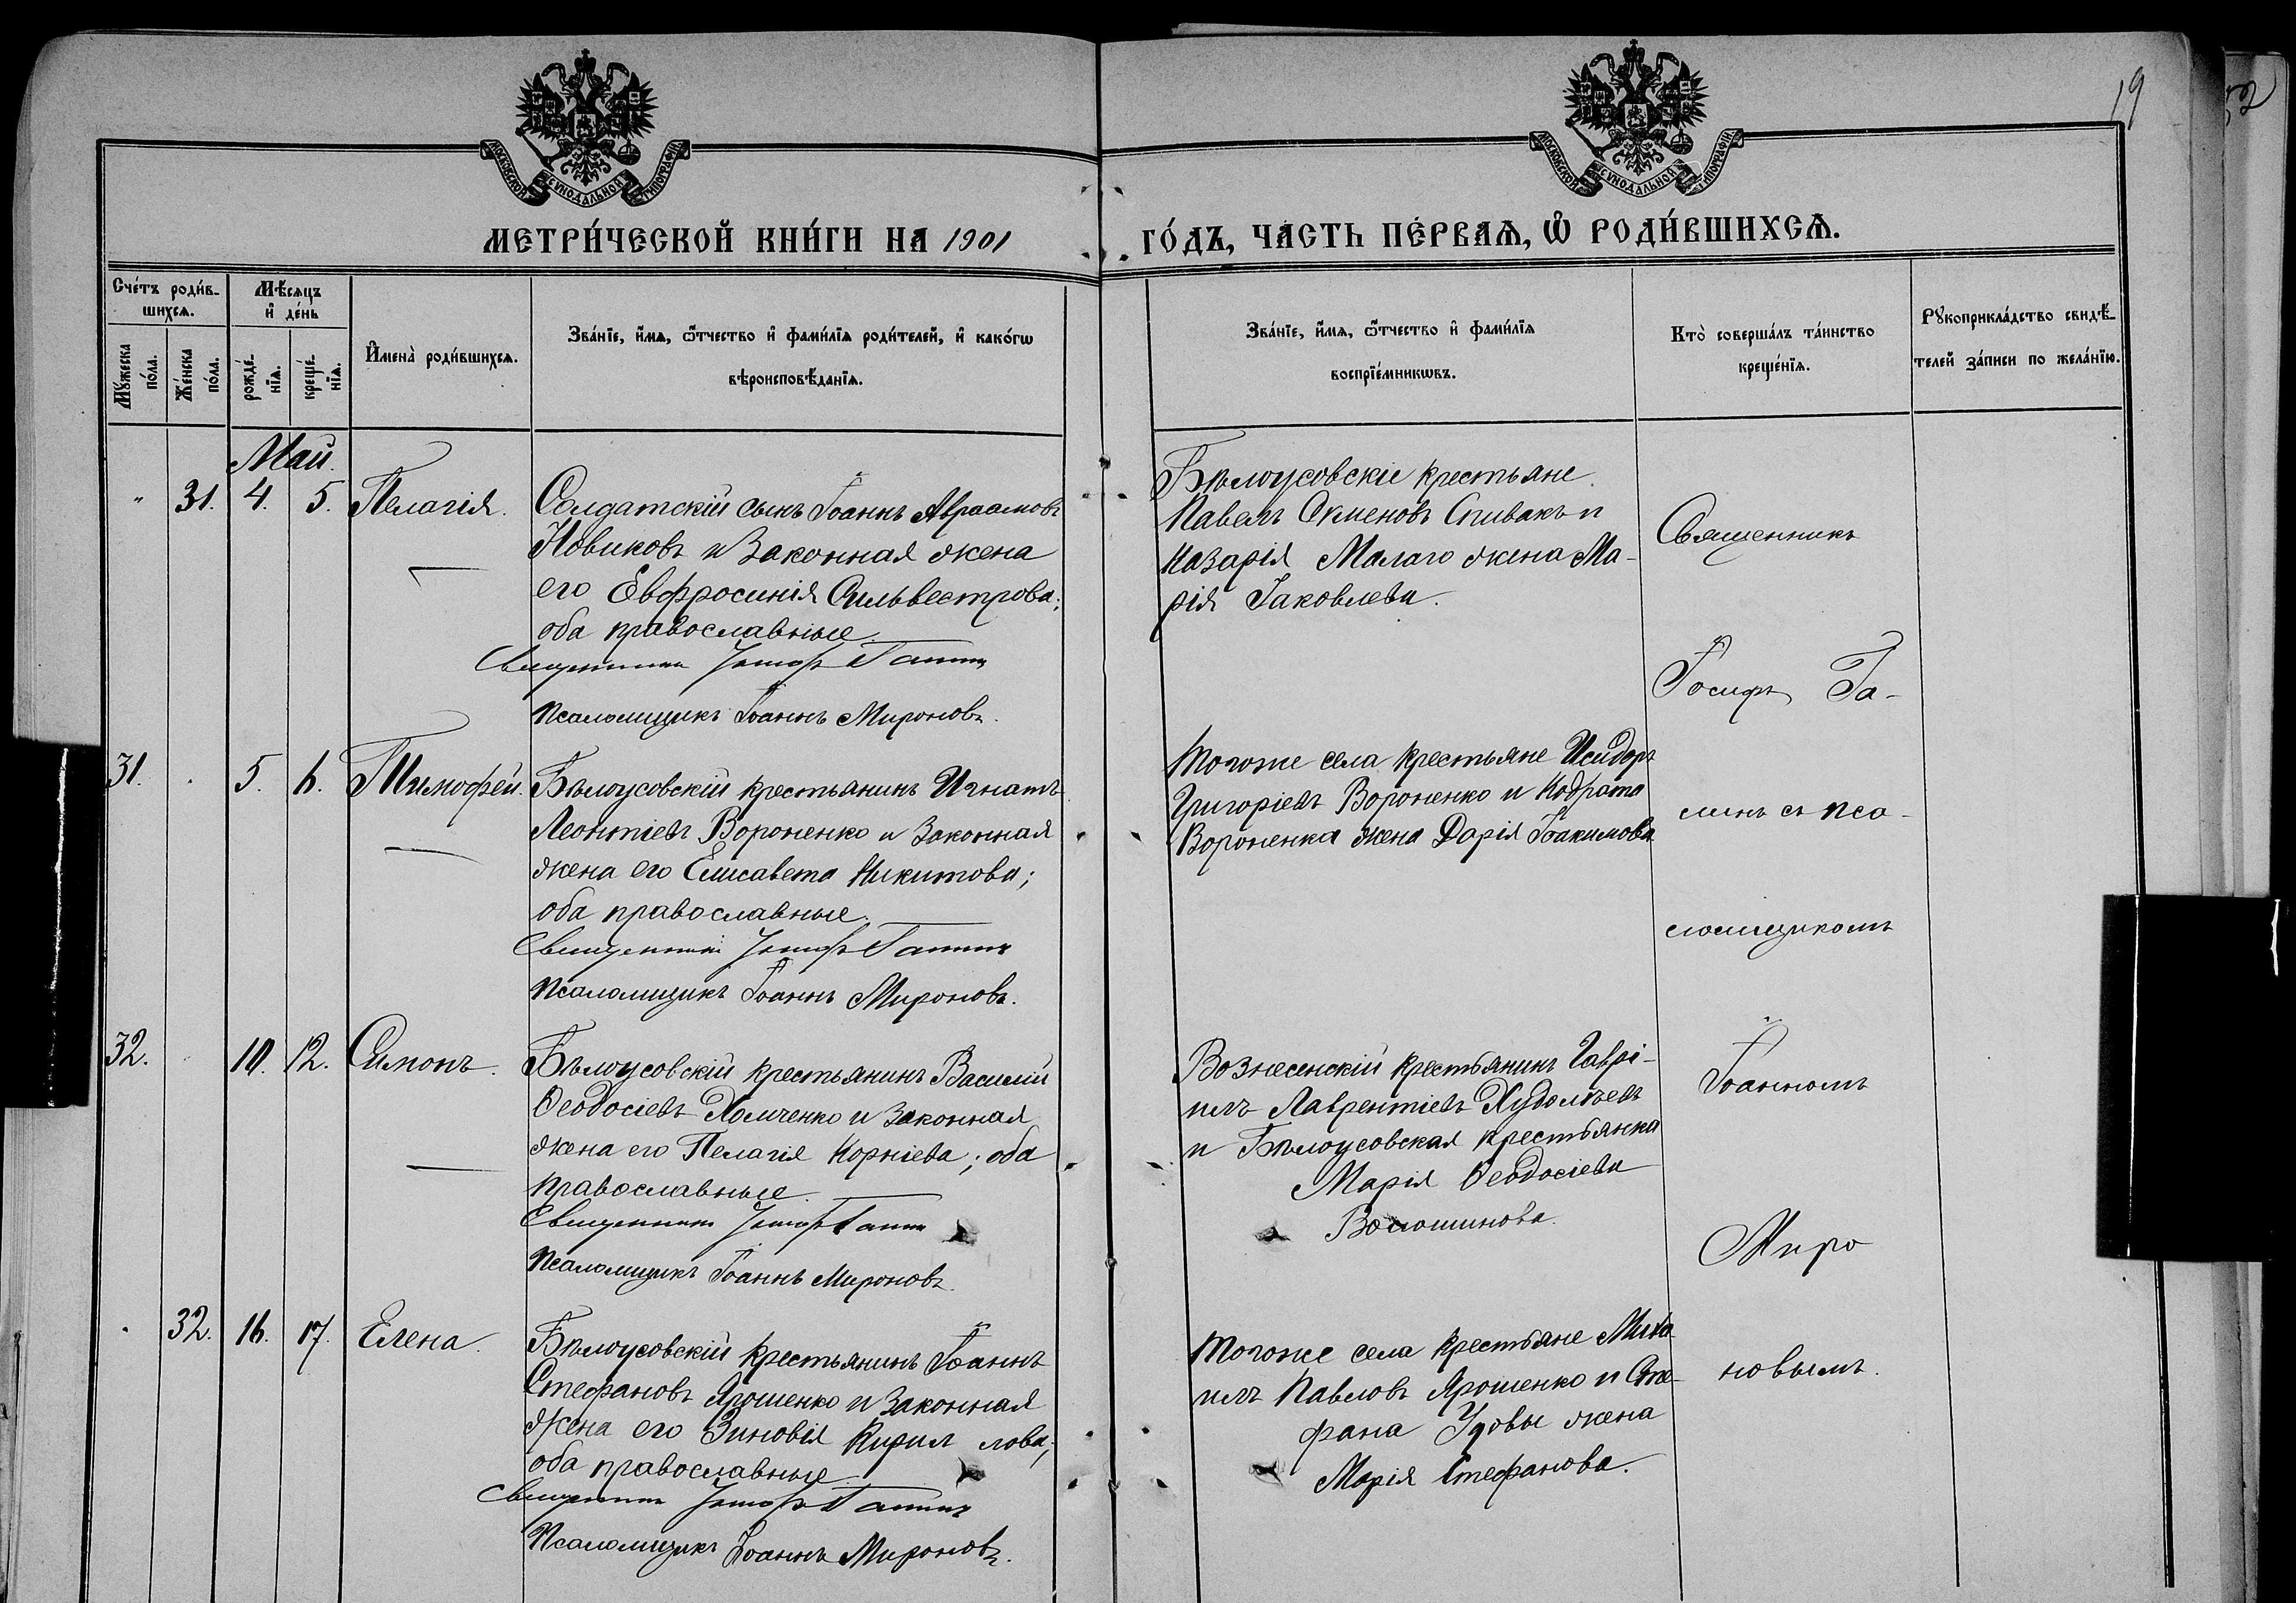 19
52
МОСКОВСКОЙ СѴНОДАЛЬНОЙ ТИПОГРАФІИ
МОСКОВСКОЙ СѴНОДАЛЬНОЙ ТИПОГРАФІИ
МЕТРИ́ЧЕСКОЙ КНИ́ГИ НА 1901
ГО́ДЪ, ЧА́СТЬ ПЕ́РВАѦ, Ѡ҆ РОДИ́ВШИХСѦ.
Сче́тъ роди́в-
шихсѧ.
Мꙋ́жеска по́ла.
Же́нска по́ла.
Мѣ́сѧцъ
и҆ де́нь
рожде́-
нїѧ.
креще́-
нїѧ.
И҆мена̀ роди́вшихсѧ.
Зва́нїе, и҆́мѧ, ѻ҆́тчество и҆ фами́лїѧ роди́телей, и҆ како́гѡ
вѣроисповѣ́данїѧ.
Зва́нїе, и҆́мѧ, ѻ҆́тчество и҆ фами́лїѧ
воспрїе́мникѡвъ.
Кто̀ соверша́лъ та́инство
креще́нїѧ.
Рꙋкоприкла́дство свидѣ́-
телей за́писи по жела́нїю.
Май.
" 31. 4. 5. Пелагія.
Солдатскій сынъ Іоаннъ Авраамовъ
Новиковъ и законная жена
его Евфросинія Сильвестрова;
оба православные.
Священникъ Іосифъ Галинъ
Псаломщикъ Іоаннъ Мироновъ.
Бѣлоусовскіе крестьяне
Павелъ Семеновъ Спивакъ и
Назарія Малаго жена Ма-
рія Іаковлева.
31. 5. 6. Тимофей.
Бѣлоусовскій крестьянинъ Игнатъ
Леонтіевъ Вороненко и законная
жена его Елисавета Никитова;
оба православные.
Священникъ Іосифъ Галинъ
Псаломщикъ Іоаннъ Мироновъ.
Тогоже села крестьяне Исидоръ
Григоріевъ Вороненко и Кодрата
Вороненка жена Дарія Іоакимова
32. 10. 12. Симонъ.
Бѣлоусовскій крестьянинъ Василій
Ѳеодосіевъ Хомченко и законная
жена его Пелагія Корніева; оба
православные.
Священникъ Іосифъ Галинъ
Псаломщикъ Іоаннъ Мироновъ.
Вознесенскій крестьянинъ Гаврі-
илъ Лаврентіевъ Худолѣевъ
и Бѣлоусовская крестьянка
Марія Ѳеодосіева
Волошинова.
32. 16. 17. Елена.
Бѣлоусовскій крестьянинъ Іоаннъ
Стефановъ Ярошенко и законная
жена его Зиновія Кирил лова;
оба православные.
Священникъ Іосифъ Галинъ
Псаломщикъ Іоаннъ Мироновъ.
Тогоже села крестьяне Миха
илъ Павловъ Ярошенко и Сте-
фана Удовы жена
Марія Стефанова.
Священникъ
Іосифъ Га-
линъ съ пса-
ломщикомъ
Іоанномъ
Миро
новымъ.